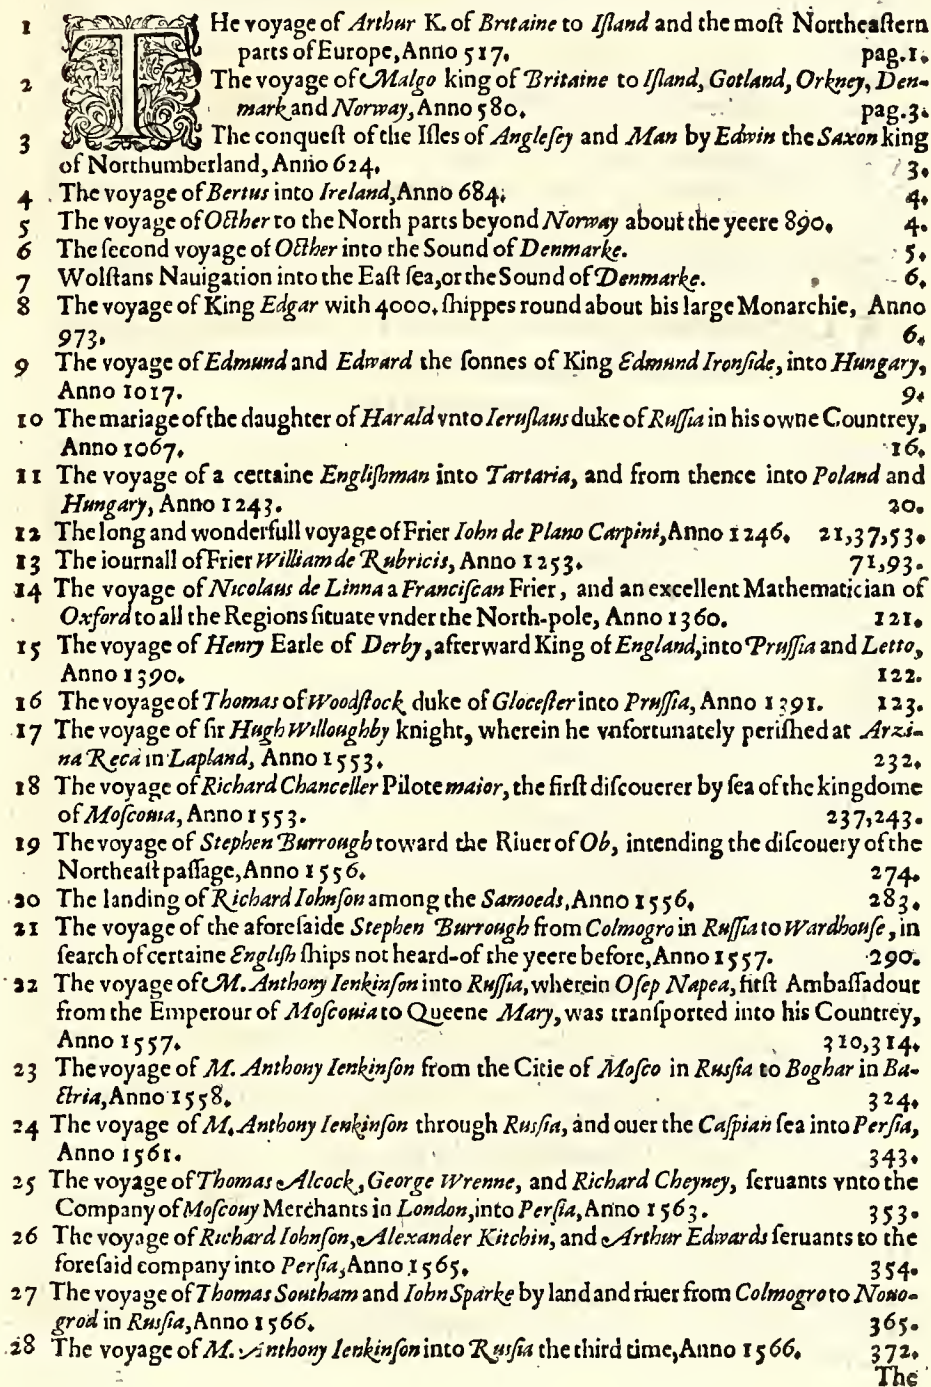 1 THe voyage of Arthur K. of Britaine to Iſland and the moſt Northeaſtern
parts of Europe, Anno 517. pag.1.
2 The voyage of Malgo king of Britaine to Iſland, Gotland, Orkney, Den-
mark and Norway, Anno 580. pag.3.
3 The conqueſt of the Iſles of Angleſey and Man by Edwin the Saxon king
of Northumberland, Anno 624. 3.
4 The voyage of Bertus into Ireland, Anno 684. 4.
5 The voyage of Octher to the North parts beyond Norway about the yeere 890. 4.
6 The ſecond voyage of Octher into the Sound of Denmarke. 5.
7 Wolſtans Nauigation into the Eaſt ſea, or the Sound of Denmarke. 6.
8 The voyage of King Edgar with 4000. ſhippes round about his large Monarchie, Anno
973. 6.
9 The voyage of Edmund and Edward the ſonnes of King Edmund Ironſide, into Hungary,
Anno 1017. 9.
10 The mariage of the daughter of Harald vnto Ieruſlaus duke of Ruſſia in his owne Countrey,
Anno 1067. 16.
11 The voyage of a certaine Engliſhman into Tartaria, and from thence into Poland and
Hungary, Anno 1243. 20.
12 The long and wonderfull voyage of Frier Iohn de Plano Carpini, Anno 1246. 21,37,53.
13 The iournall of Frier William de Rubricis, Anno 1253. 71,93.
14 The voyage of Nicolaus de Linna a Franciſcan Frier, and an excellent Mathematician of
Oxford to all the Regions ſituate vnder the North-pole, Anno 1360. 121.
15 The voyage of Henry Earle of Derby, afterward King of England, into Pruſſia and Letto,
Anno 1390. 122.
16 The voyage of Thomas of Woodſtock duke of Gloceſter into Pruſſia, Anno 1391. 123.
17 The voyage of ſir Hugh Willoughby knight, wherein he vnfortunately periſhed at Arzi-
na Reca in Lapland, Anno 1553. 232.
18 The voyage of Richard Chanceller Pilote maior, the firſt diſcouerer by ſea of the kingdome
of Moſcouia, Anno 1553. 237,243.
19 The voyage of Stephen Burrough toward the Riuer of Ob, intending the diſcouery of the
Northeaſt paſſage, Anno 1556. 274.
20 The landing of Richard Iohnſon among the Samoeds, Anno 1556. 283.
21 The voyage of the aforeſaide Stephen Burrough from Colmogro in Ruſſia to Wardhouſe, in
ſearch of certaine Engliſh ſhips not heard-of the yeere before, Anno 1557. 290.
22 The voyage of M. Anthony Ienkinſon into Ruſſia, wherein Oſep Napea, firſt Ambaſſadour
from the Emperour of Moſcouia to Queene Mary, was tranſported into his Countrey,
Anno 1557. 310,314.
23 The voyage of M. Anthony Ienkinſon from the Citie of Moſco in Rusſia to Boghar in Ba-
ctria, Anno 1558. 324.
24 The voyage of M. Anthony Ienkinſon through Rusſia, and ouer the Caſpian ſea into Perſia,
Anno 1561. 343.
25 The voyage of Thomas Alcock, George Wrenne, and Richard Cheyney, ſeruants vnto the
Company of Moſcouy Merchants in London, into Perſia, Anno 1563. 353.
26 The voyage of Richard Iohnſon, Alexander Kitchin, and Arthur Edwards ſeruants to the
foreſaid company into Perſia, Anno 1565. 354.
27 The voyage of Thomas Southam and Iohn Sparke by land and riuer from Colmogro to Nouo-
grod in Rusſia, Anno 1566. 365.
28 The voyage of M. Anthony Ienkinſon into Rusſia the third time, Anno 1566. 372.
The